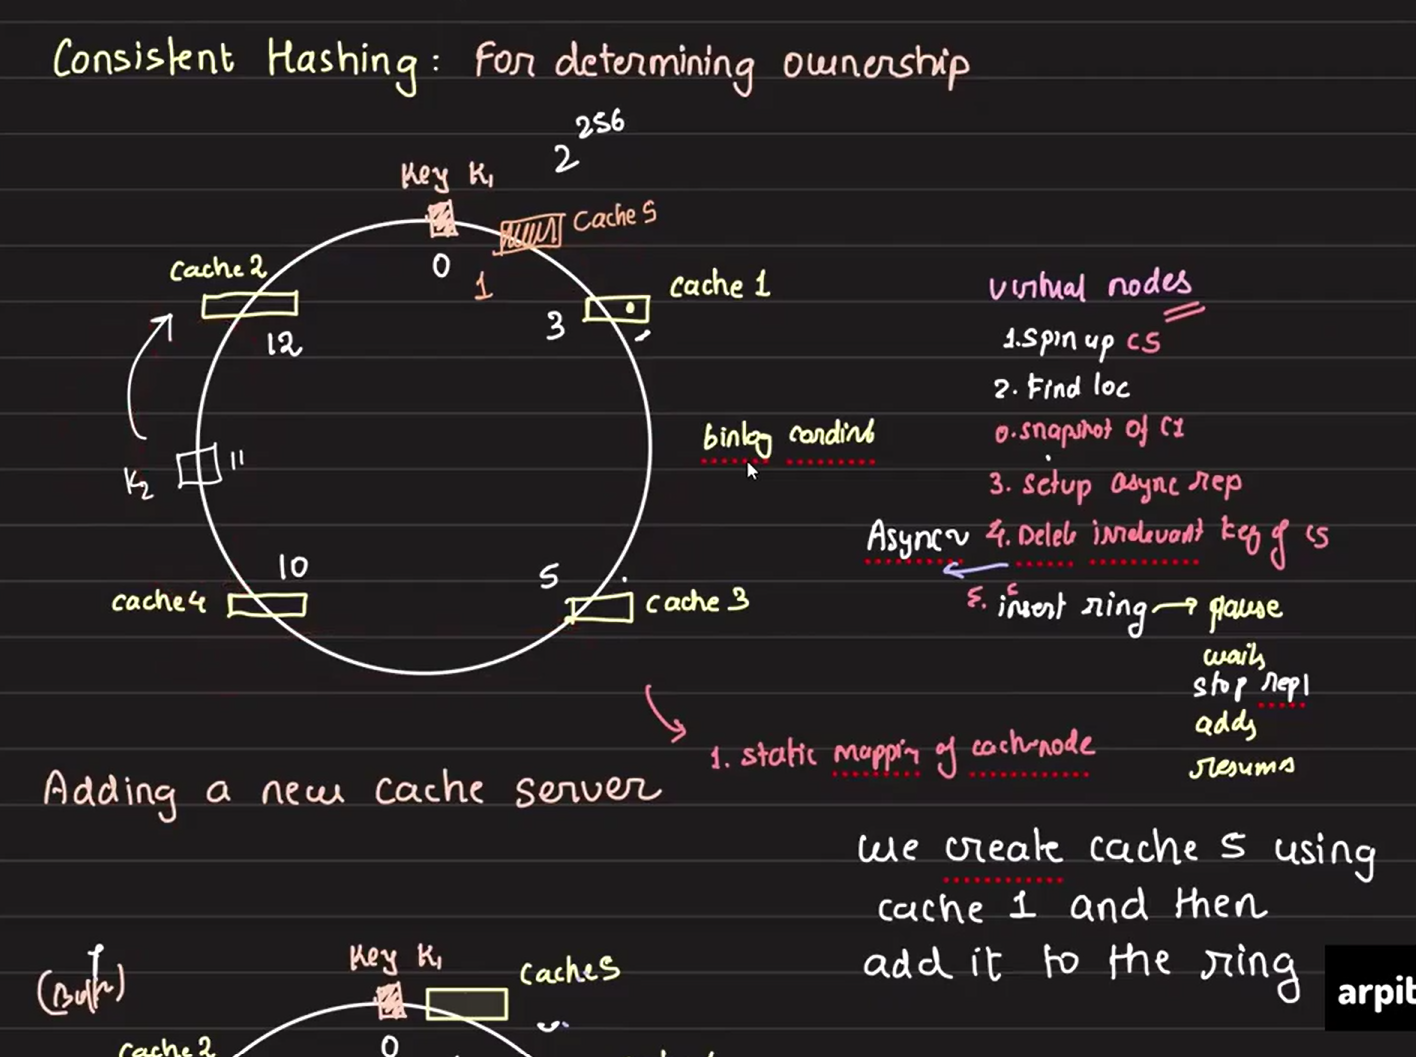 Consistent Hashing: For determining ownership
2^256
Key K1
Cache 5
0
1
Cache 2
12
Cache 1
3
virtual nodes
1. Spin up C5
2. Find loc
0. snapshot of C1
3. setup async rep
Async 4. Delete irrelevant key of C5
5. insert ring → pause
waits
stop repl
adds
resums
K2
11
10
Cache 4
5
Cache 3
1. static mapping of cache node
Adding a new cache server
we create cache 5 using
cache 1 and then
add it to the ring
Key K1
Cache 5
Cache 2
0
arpit